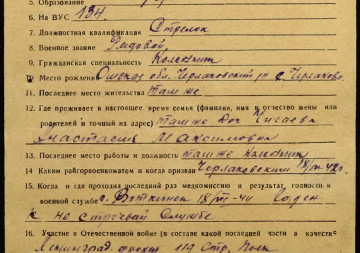 5. Образование
6. На ВУС 134.
7. Должностная квалификация Стрелок
8. Военное звание Рядовой,
9. Гражданская специальность Колхозник
10. Место рождения Омская обл. Черлаковский р-н с. Черлаково.
11. Последнее место жительства там же
12. Где проживает в настоящее время семья (фамилия, имя и отчество жены или
родителей и точный их адрес) там же
Анастасия Максимовна
13. Последнее место работы и должность там же колхозник
14. Каким райгорвоенкоматом и когда призван Черлаковский 42 г.
15. Когда и где проходил последний раз медкомиссию и результат, годность к
военной службе 18/VIII-44 Годен
к не строевой службе
16. Участие в Отечественной войне (в составе какой последней части, в качестве
Ленинград. фронт 119 Стр. Полк